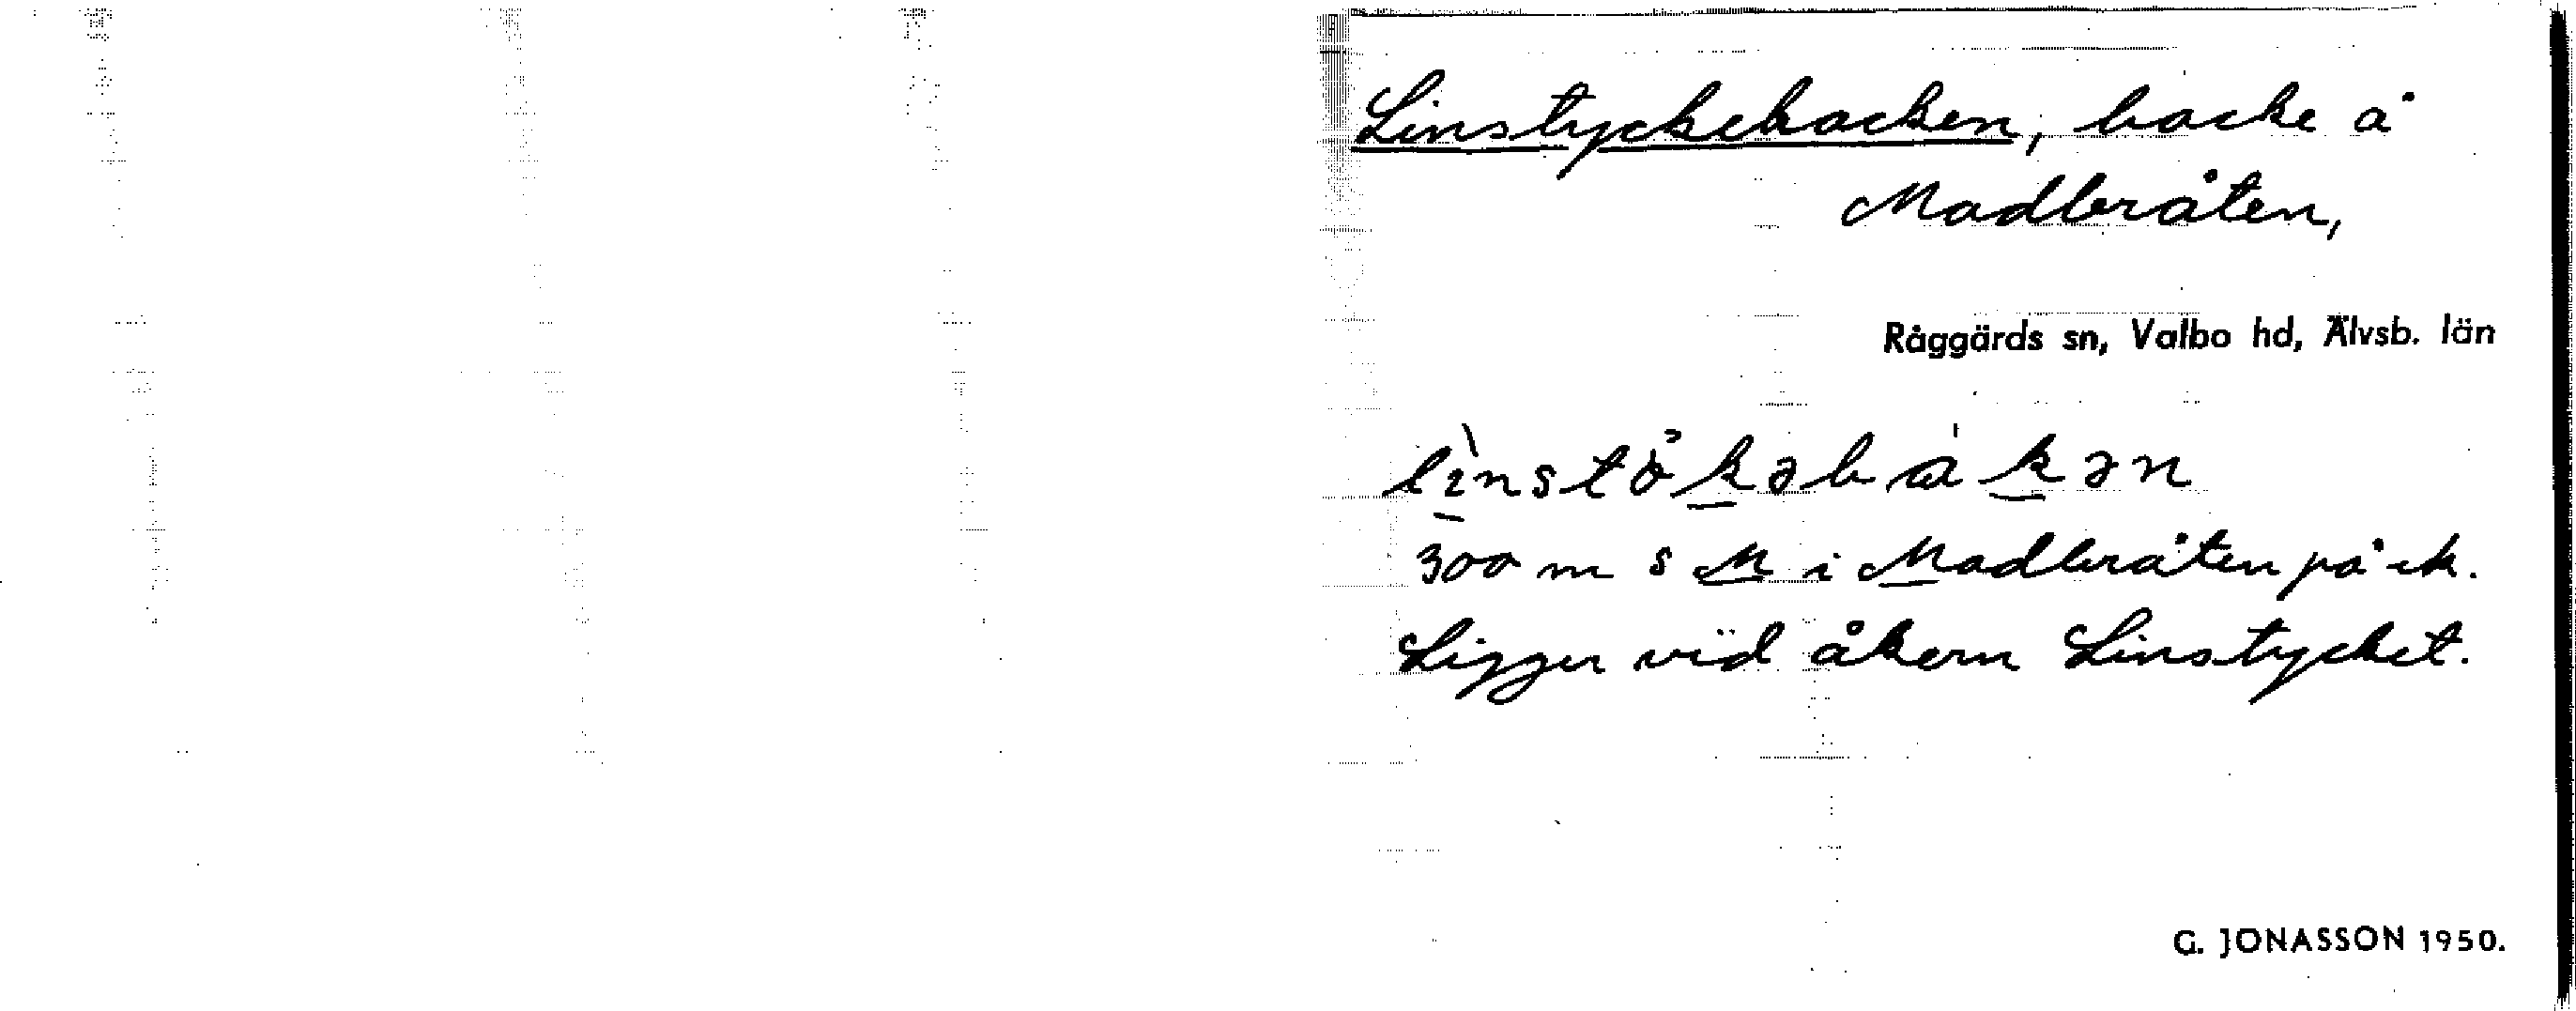 Linstyckebacken, backe å
Madbråten,
Råggärds sn, Valbo hd, Älvsb. län
lìnstö̀kəbákən
300 m s M i Madbråten på ek.
Ligger vid åkern Linstycket.
G. JONASSON 1950.